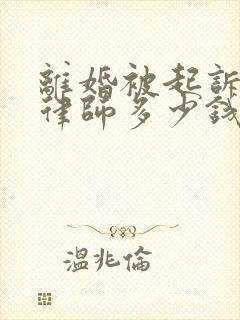 離婚被起訴
律師多少錢
溫兆倫